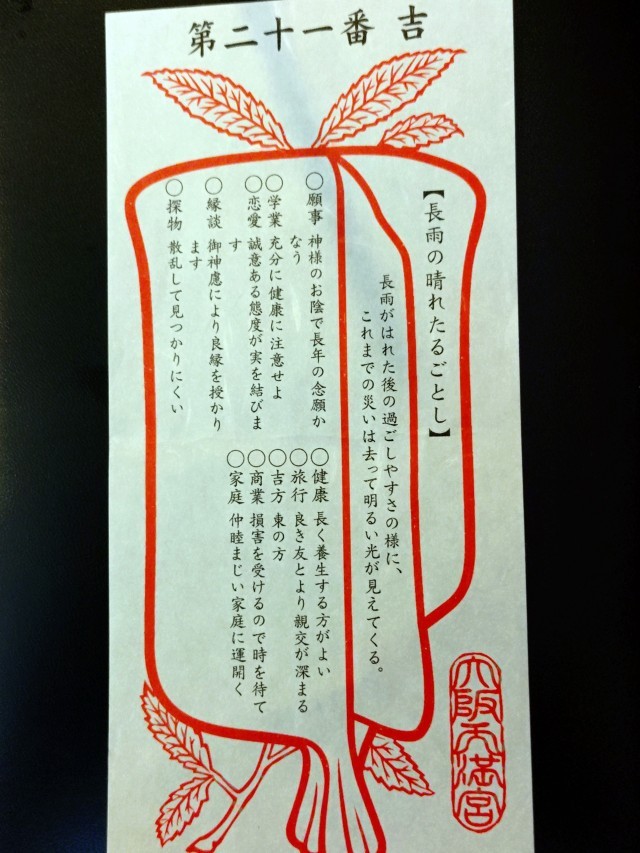 第二十一番 吉
【長雨の晴れたるごとし】
長雨がはれた後の過ごしやすさの様に、
これまでの災いは去って明るい光が見えてくる。
○願事 神様のお陰で長年の念願か
なう
○学業 充分に健康に注意せよ
○恋愛 誠意ある態度が実を結びま
す
○縁談 御神慮により良縁を授かり
ます
○探物 散乱して見つかりにくい
○健康 長く養生する方がよい
○旅行 良き友とより親交が深まる
○吉方 東の方
○商業 損害を受けるので時を待て
○家庭 仲睦まじい家庭に運開く
大阪天満宮